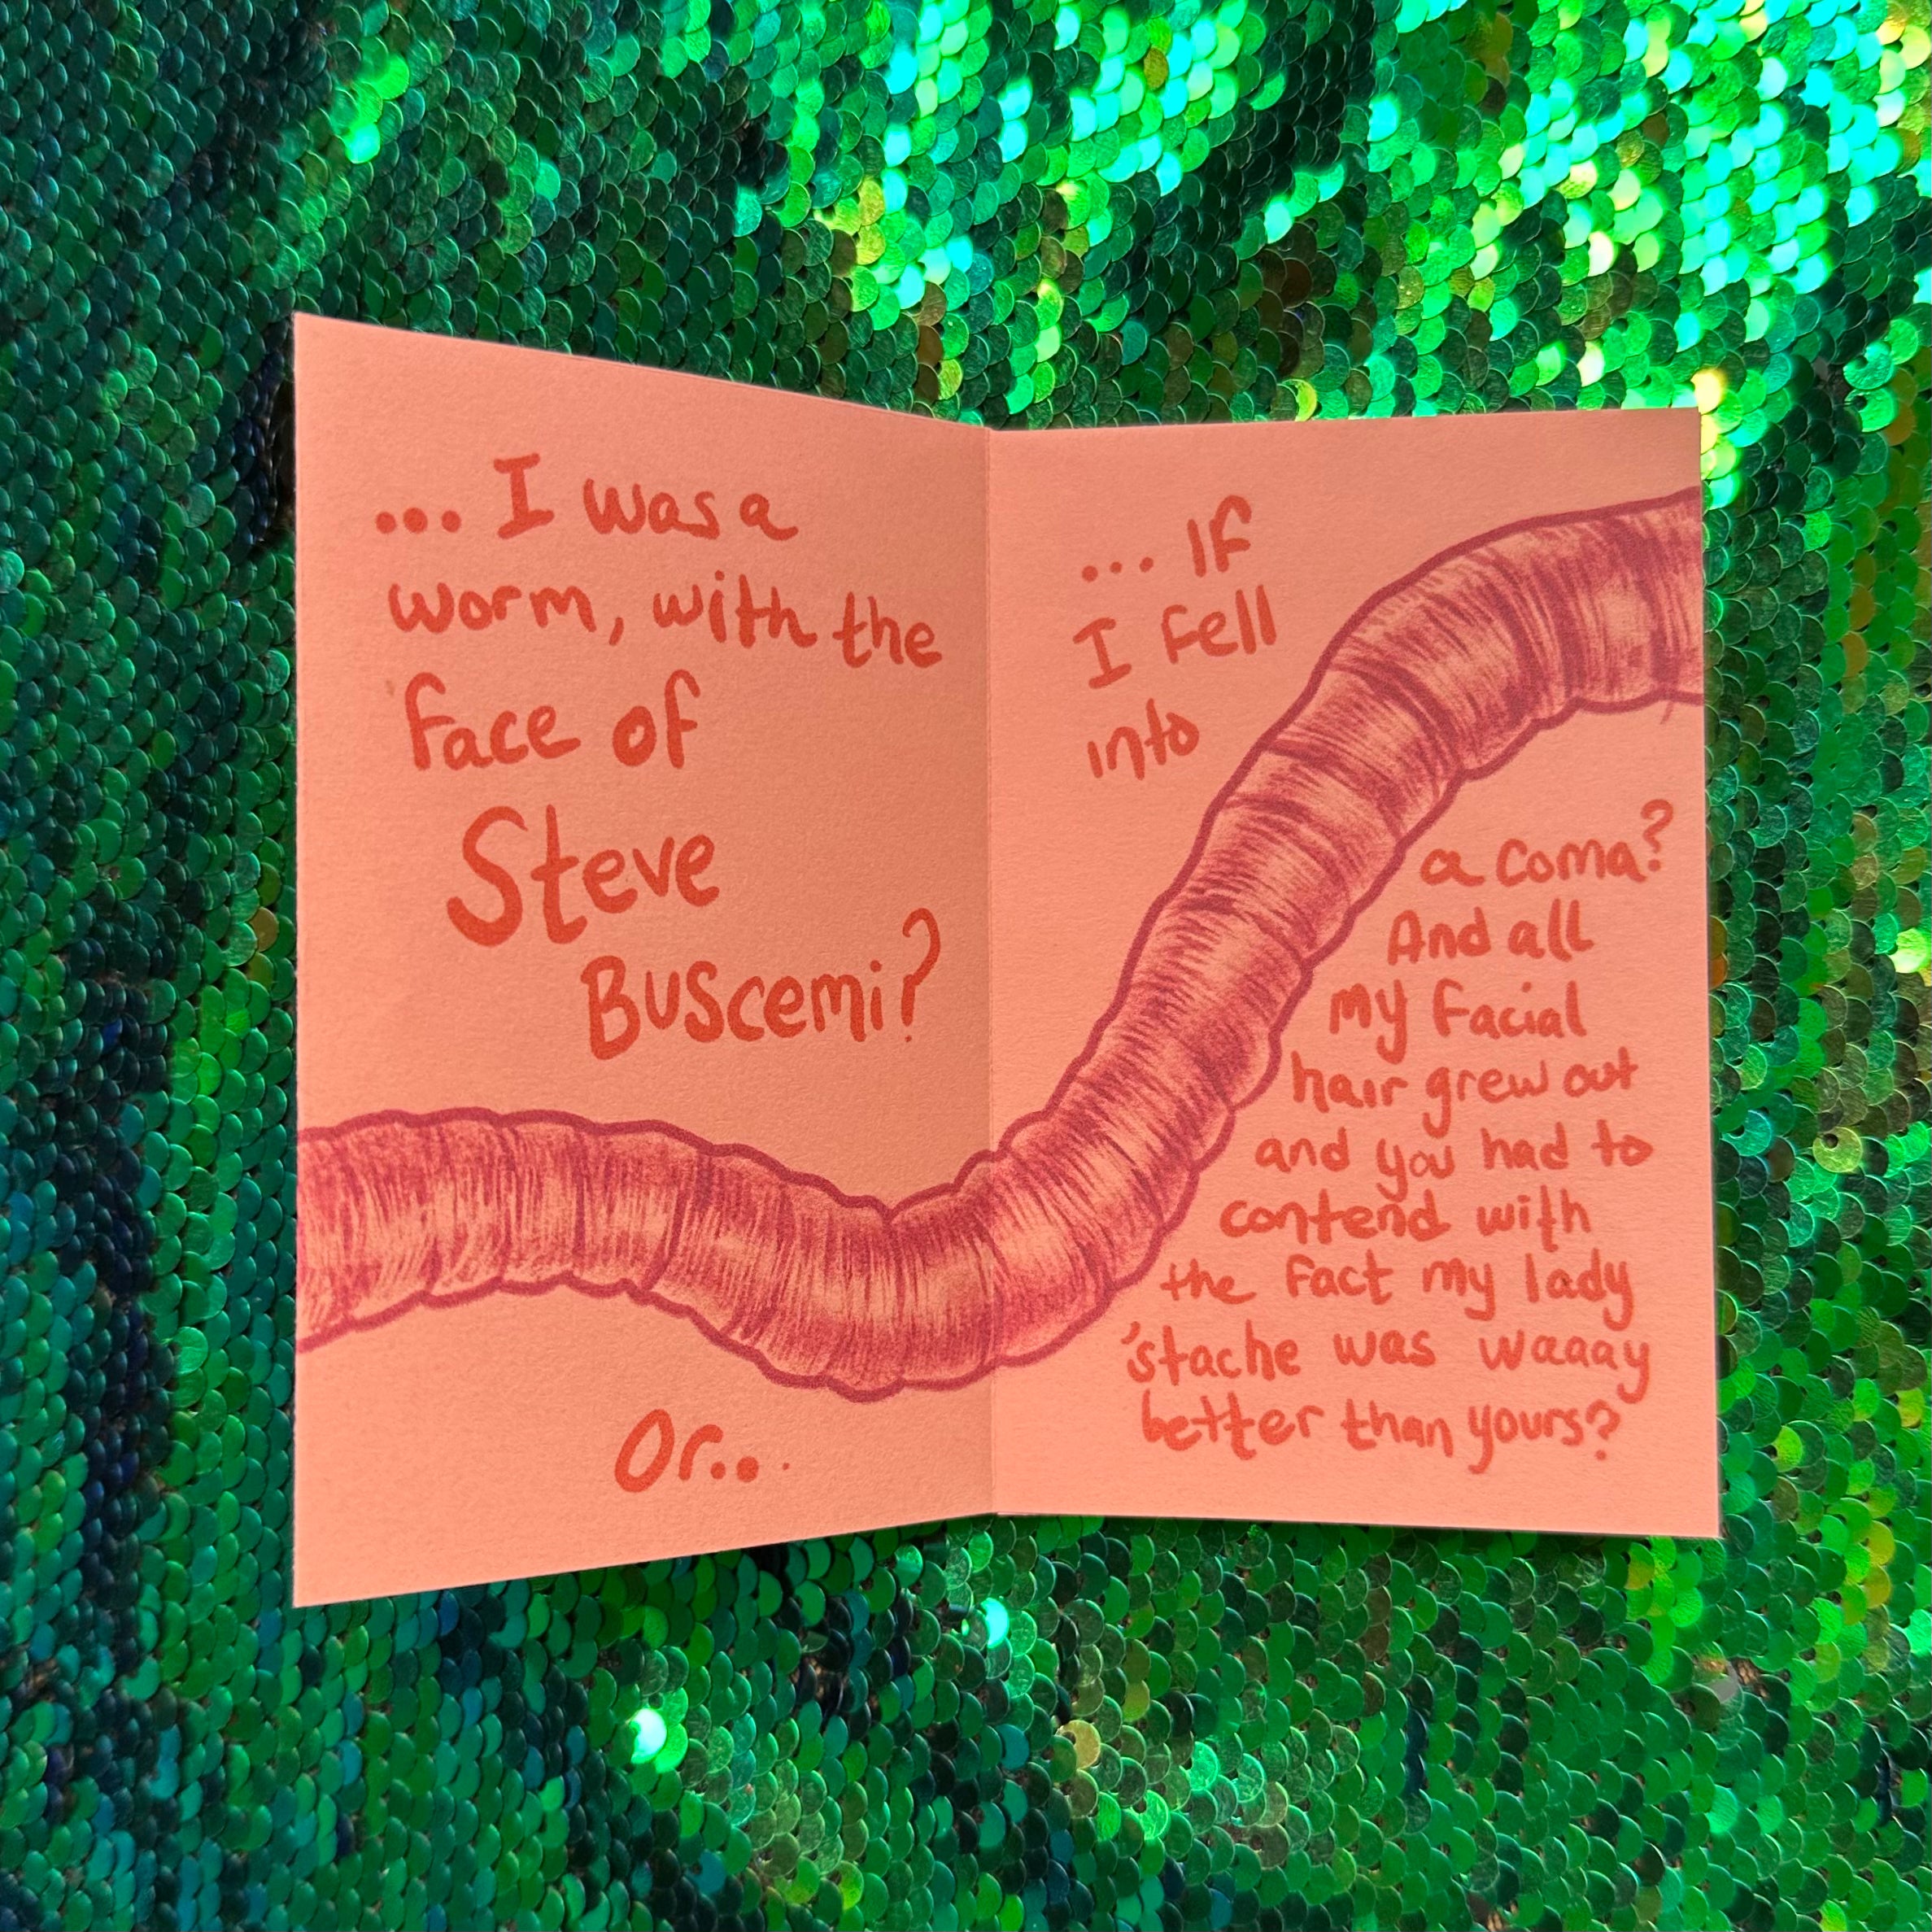 ... I was a
worm, with the
face of
Steve
Buscemi?
Or...
... If
I fell
into
a coma?
And all
my facial
hair grew out
and you had to
contend with
the fact my lady
'stache was waaay
better than yours?